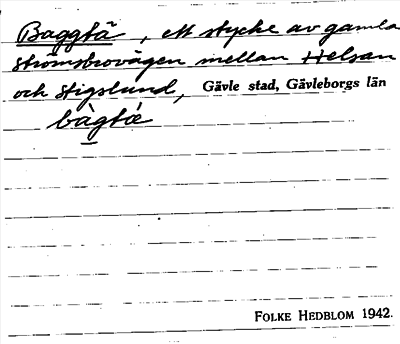 Baggtä, ett stycke av gamla
Strömsbrovägen mellan Helsan
och Stigslund, Gävle stad, Gävleborgs län
bàgtæ
FOLKE HEDBLOM 1942.